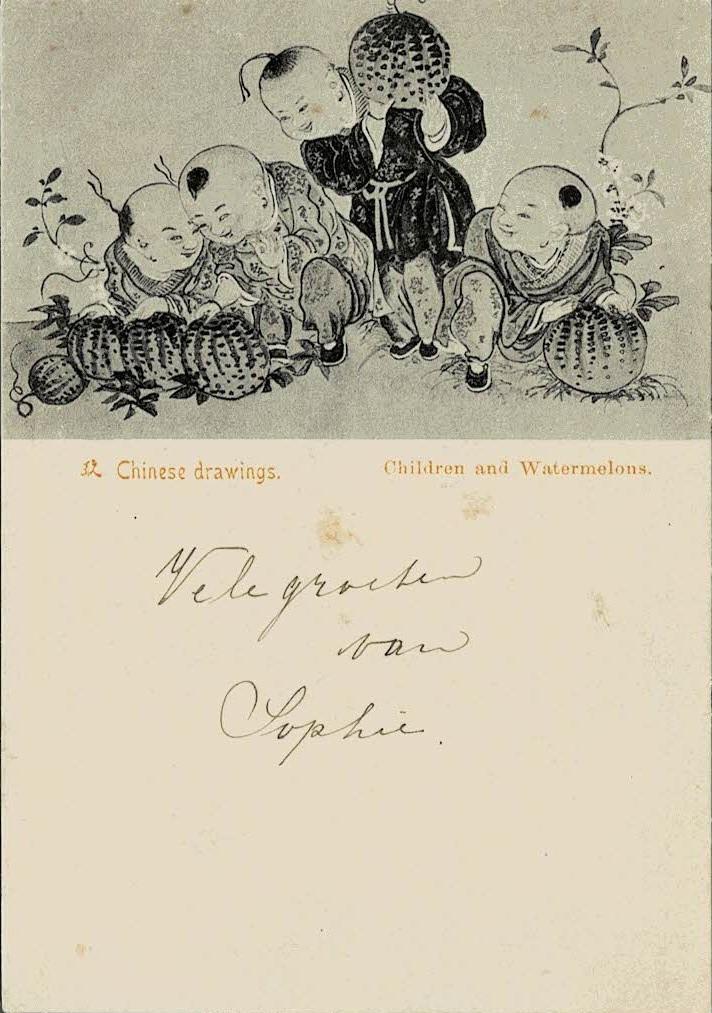 Chinese drawings. Children and Watermelons.
Vele groeten
van
Sophie.